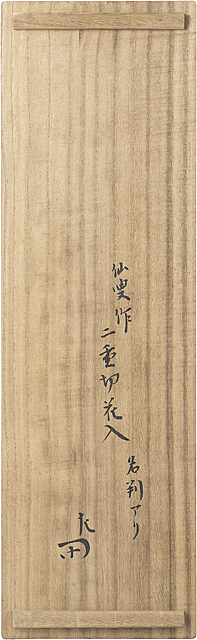 仙叟作
二重切花入
名判アリ
左